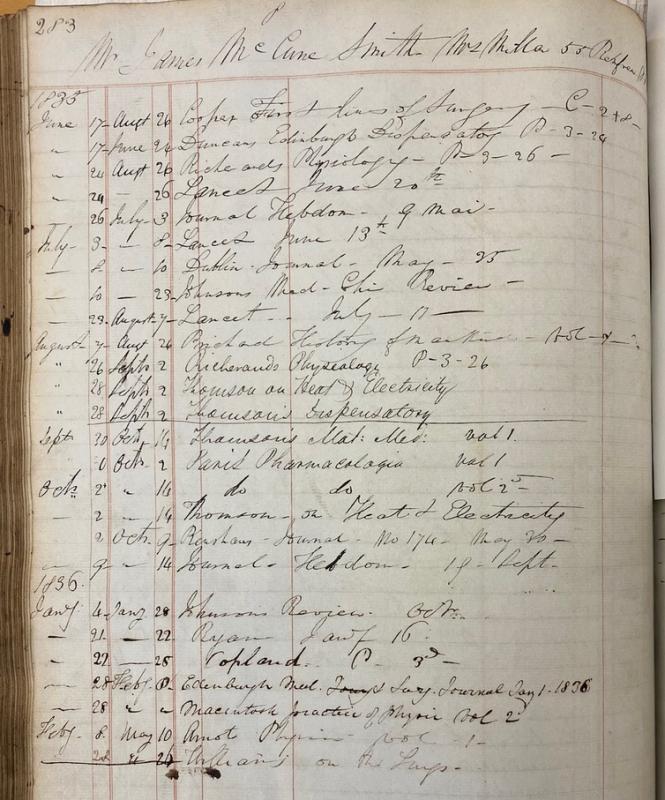 283
Mr James McCune Smith Mrs Milla 55
1835
June 17 - Augt 26 Cooper First lines of Surgery - C - 2
" 17 - June 24 Duncans Edinburgh Dispensatory P - 3 - 24
" 24 Augt 26 Richerands Physiology - P - 3 - 26 -
" 24 - 26 Lancet June 20th
26 July - 3 Journal Hebdom - 9 Mai -
July - 3 - " 8 - Lancet June 13th
- 8 " 10 Dublin Journal - May - 35
- 10 - 23 - Johnsons Med - Chi Review -
- 23 - August 7 - Lancet - - July - 11 -
August 7 - Augt 26 Prichard History of mankind - Vol -
" 26 Septr 2 Richerands Physiology P - 3 - 26
" 28 Septr 2 Thomson on Heat & Electricity
" 28 Septr 2 Thomson's Dispensatory
Sept 30 Octr 14 Thomsons Mat: Med: vol 1.
Octr 2 Paris Pharmacologia vol 1
Octr 2 " 14 do do vol 2
- 2 " 14 Thomson - on Heat & Electricity
2 Octr 9 - Renshaws - Journal - No 174 - May 30 -
- 9 - " 14 Journal - Hebdom - 19 - Sept -
1836
Jany 4 - Jany 28 Johnsons Review - Octr.
- 21 - - 22 Ryan Jany 16
- 22 - 25 Copland. P - 3d -
- 28 Feby. 8 - Edinburgh Med. Surg. Journal Jany 1 - 1836
- 28 " " Macintosh practice of Physic Vol 2
Feby - 8 May 10 Arnot Physics vol - 1 -
" Williams on the Lungs -